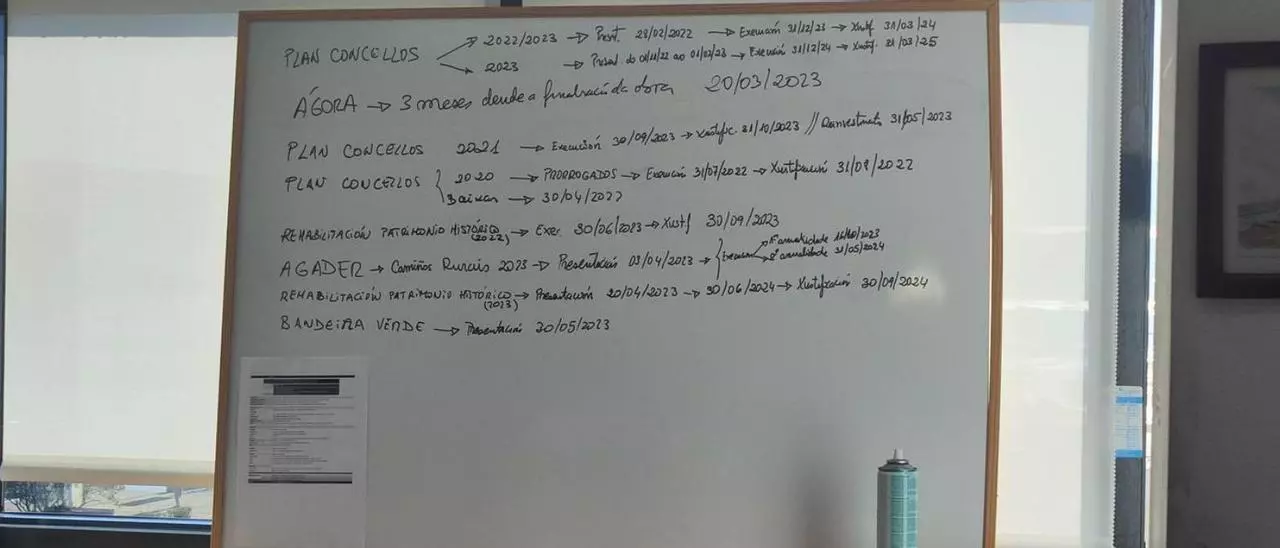 PLAN CONCELLOS → 2022/2023 → Prest. 28/02/2022 → Execución 31/12/23 → Xustf 31/03/24
→ 2023 → Present. do 01/11/22 ao 01/02/23 → Execució 31/12/24 → Xustf. 31/03/25
ÁGORA → 3 meses dende a finalización da obra 20/03/2023
PLAN CONCELLOS 2021 → Execución 30/09/2023 → Xustific. 31/10/2023 // Reinvestimento 31/05/2023
PLAN CONCELLOS { 2020 → PRORROGADOS → Execución 31/07/2022 → Xustificación
Baixas → 30/04/2022
REHABILITACIÓN PATRIMONIO HISTÓRICO (2022) → Exe. 30/06/2023 → Xustf 30/09/2023
AGADER → Camiños Rurais 2023 → Presentación 03/04/2023 → { Execución → 1ª anualidade
→ 2ª anualidade 31/05/2024
REHABILITACIÓN PATRIMONIO HISTÓRICO (2023) → Presentación 20/04/2023 → 30/06/2024 → Xustificación 30/09/2024
BANDEIRA VERDE → Presentación 30/05/2023